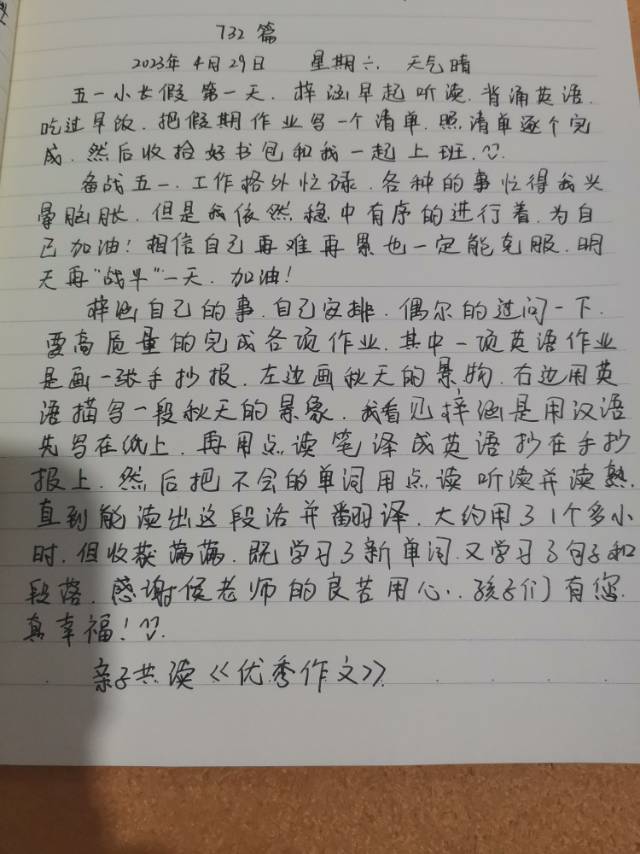 732篇
2023年4月29日 星期六 天气晴
五一小长假第一天.梓涵早起听读.背诵英语.
吃过早饭.把假期作业写一个清单.照清单逐个完
成.然后收拾好书包和我一起上班.
备战五一.工作格外忙碌.各种的事忙得我头
晕脑胀.但是我依然稳中有序的进行着.为自
己加油!相信自己再难再累也一定能克服.明
天再"战斗"一天.加油!
梓涵自己的事.自己安排.偶尔的过问一下.
要高质量的完成各项作业.其中一项英语作业
是画一张手抄报.左边画秋天的景物.右边用英
语描写一段秋天的景象.我看见梓涵是用汉语
先写在纸上.再用点读笔译成英语抄在手抄
报上.然后把不会的单词用点读听读并读熟.
直到能读出这段话并翻译.大约用了1个多小
时.但收获满满.既学习了新单词.又学习了句子和
段落.感谢侯老师的良苦用心..孩子们有您.
真幸福!
亲子共读《优秀作文》